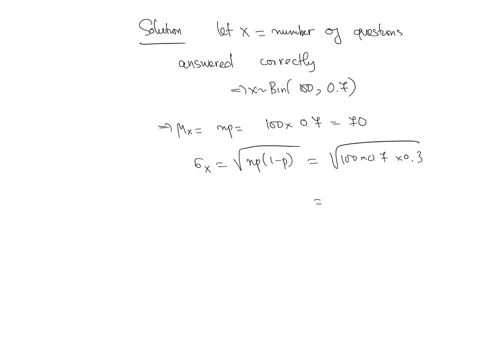 Solution let x = number of questions
answered correctly
⇒ x ~ Bin(100, 0.7)
⇒ μx = np = 100 x 0.7 = 70
σx = √np(1-p) = √100 x 0.7 x 0.3
=